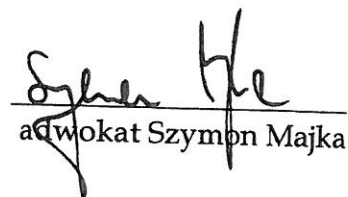 adwokat Szymon Majka